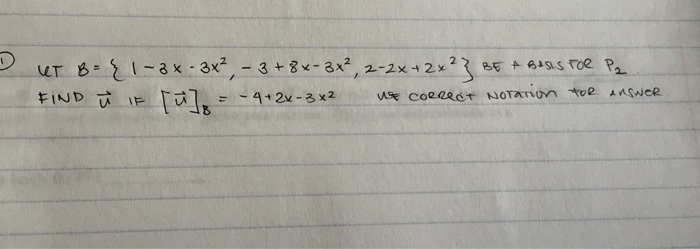 1) LET B = { 1-3x-3x², -3+8x-3x², 2-2x+2x² } BE A BASIS FOR P₂.
FIND u⃗ IF [u⃗]_B = -4+2x-3x² USE CORRECT NOTATION FOR ANSWER